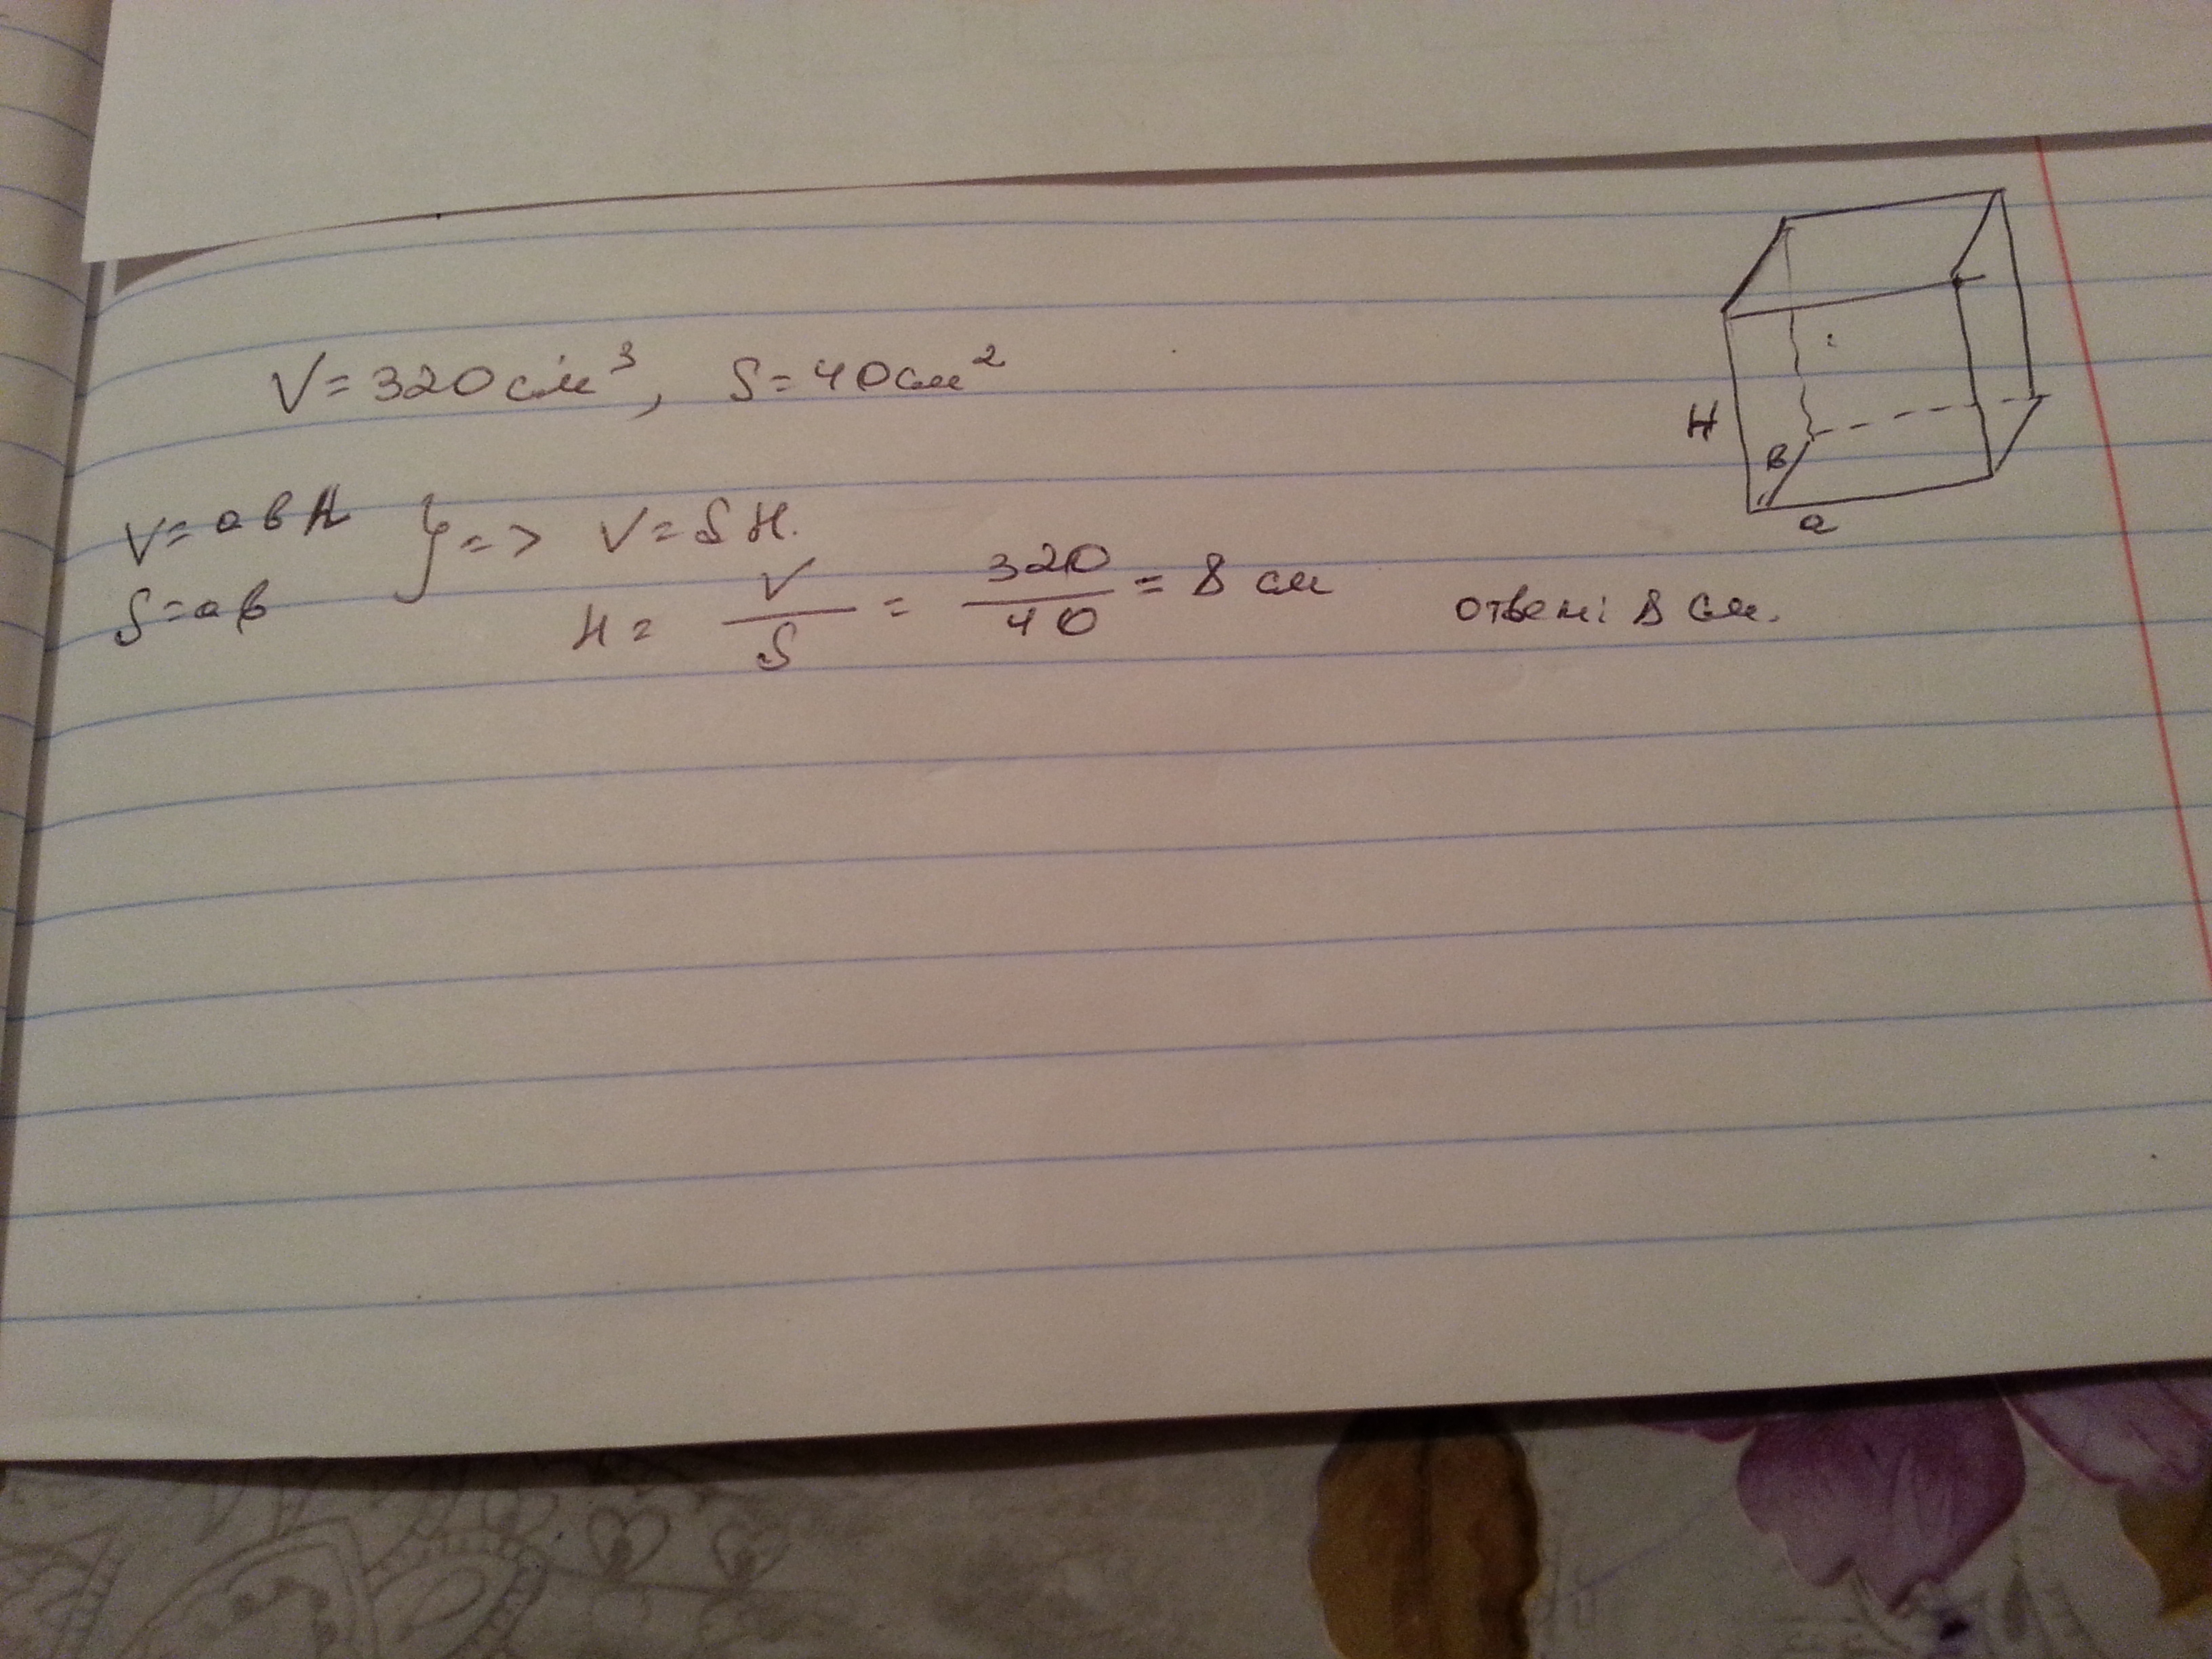 V=320см³, S=40см²
H
в
a
V=авН } => V=SH.
S=ав
H = V/S = 320/40 = 8 см
ответ: 8 см.